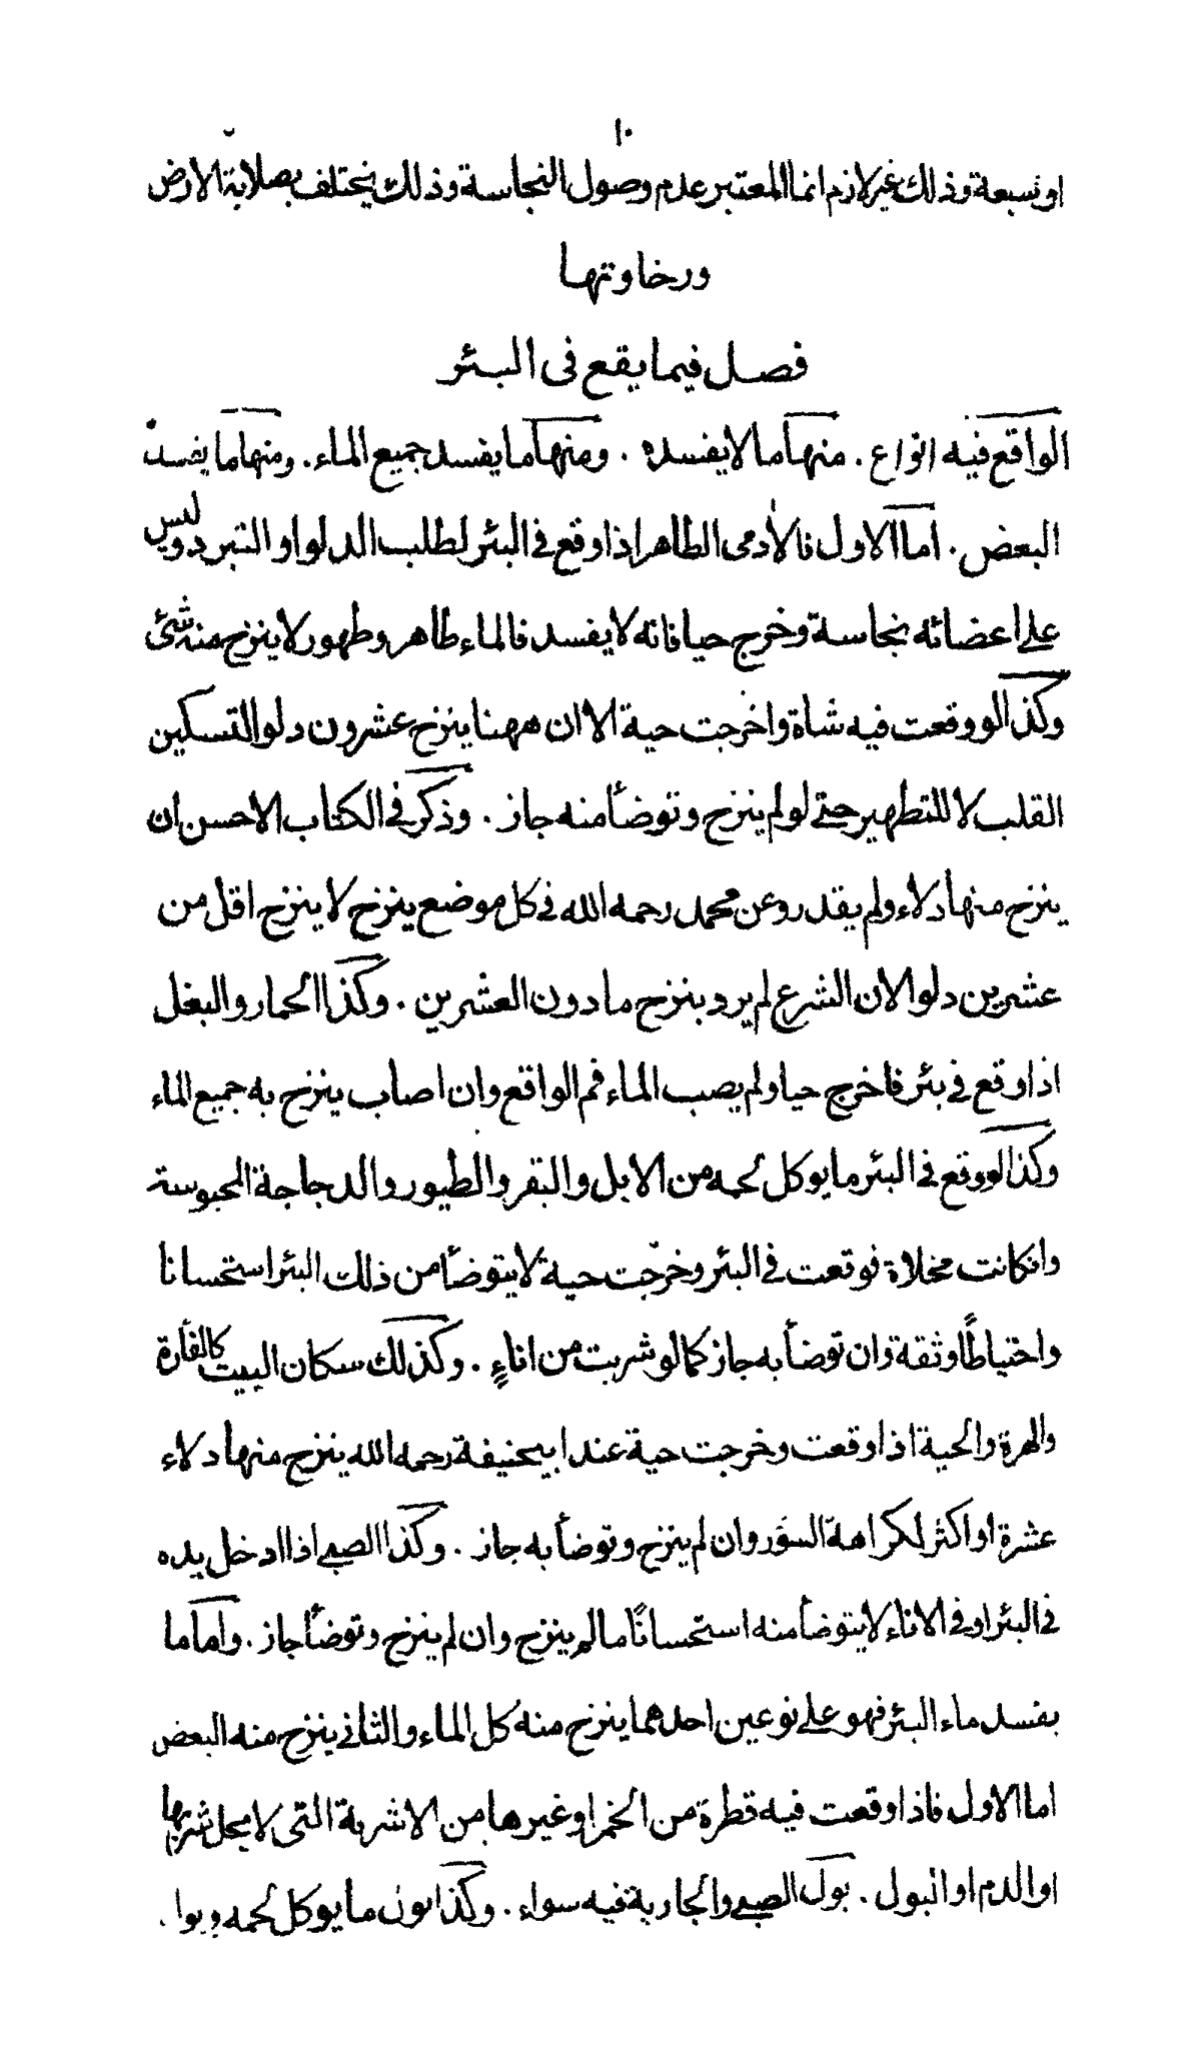 ١٠
او نسبعة وذلك غير لازم انما المعتبر عدم وصول النجاسة وذلك يختلف بصلابة الارض
ورخاوتها
فصل فيما يقع فى البئر
الواقع فيه انواع . منها ما لا يفسده . ومنها ما يفسد جميع الماء . ومنها ما يفسد
البعض . اما الاول فالأدمى الطاهر اذا وقع فى البئر لطلب الدلو او التبرد وليس
على اعضائه نجاسة وخرج حيا فانه لا يفسد فالماء طاهر وطهور لا ينزح منه شئ
وكذا لو وقعت فيه شاة واخرجت حية الا ان ههنا ينزح عشرون دلوا لتسكين
القلب لا للتطهير حتى لو لم ينزح وتوضأ منه جاز . وذكر فى الكتاب الاحسن ان
ينزح منها دلاء ولم يقدر وعن محمد رحمه الله فى كل موضع ينزح لا ينزح اقل من
عشرين دلوا لان الشرع لم يرد بنزح ما دون العشرين . وكذا الحمار والبغل
اذا وقع فى بئر فاخرج حيا ولم يصب الماء فم الواقع وان اصاب ينزح به جميع الماء
وكذا لو وقع فى البئر ما يوكل لحمه من الابل والبقر والطيور والدجاجة المحبوسة
وانكانت مخلاة فوقعت فى البئر وخرجت حية لا يتوضأ من ذلك البئر استحسانا
واحتياطًا وثقة وان توضأ به جاز كما لو شربت من اناءٍ . وكذلك سكان البيت كالفأرة
والهرة والحية اذا وقعت وخرجت حية عند ابيحنيفة رحمه الله ينزح منها دلاء
عشرة او اكثر لكراهة السؤر وان لم ينزح وتوضأ به جاز . وكذا الصبى اذا ادخل يده
فى البئر او فى الاناء لا يتوضأ منه استحسانًا ما لم ينزح وان لم ينزح وتوضأ جاز . واما ما
يفسد ماء البئر فهو على نوعين احدهما ينزح منه كل الماء والثانى ينزح منه البعض
اما الاول فاذا وقعت فيه قطرة من الخمر او غيرها من الاشربة التى لا يحل شربها
او الدم او البول . بول الصبى والجارية فيه سواء . وكذا بول ما يوكل لحمه